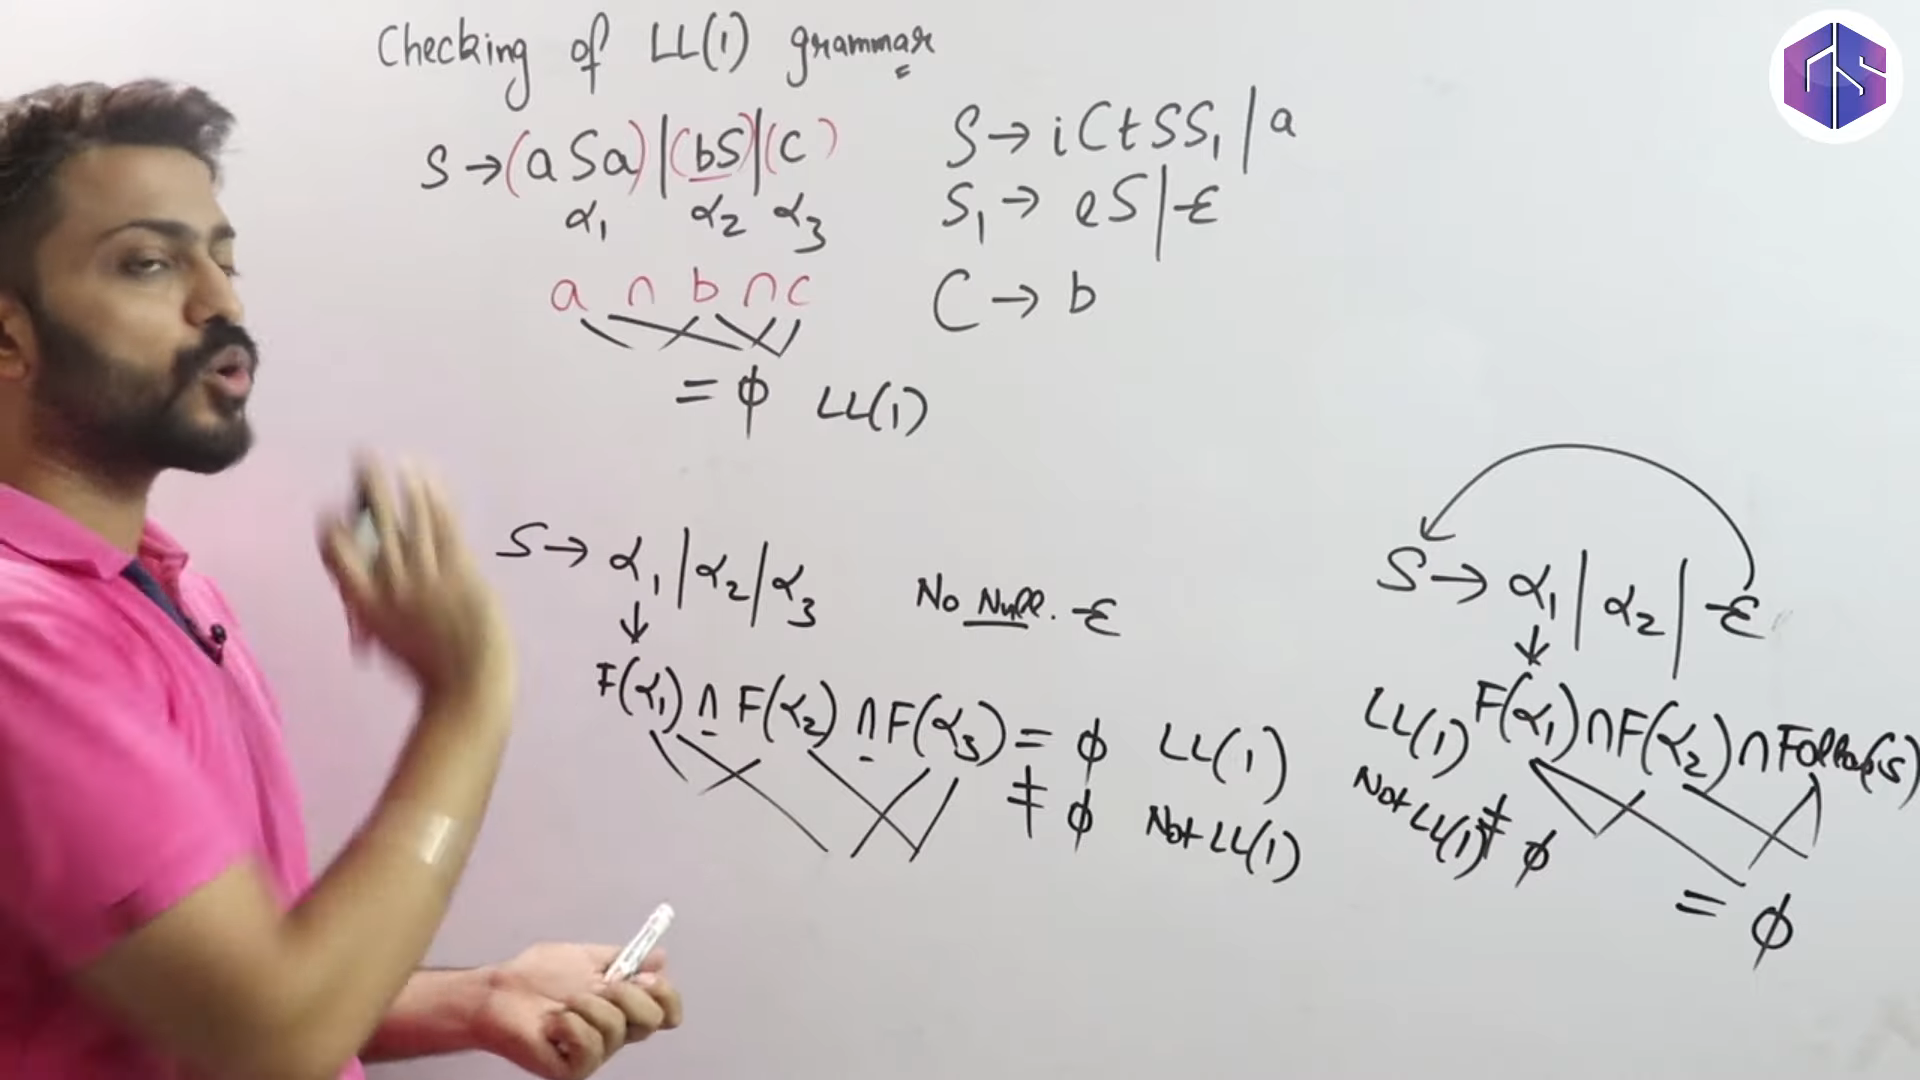 Checking of LL(1) grammar
S → (aSa) | (bS) | (C)
α1 α2 α3
a ∩ b ∩ c
= ϕ LL(1)
S → iCtSS1 | a
S1 → eS | Ɛ
C → b
S → α1 | α2 | α3 No Null. Ɛ
F(α1) ∩ F(α2) ∩ F(α3) = ϕ LL(1)
≠ ϕ Not LL(1)
S → α1 | α2 | Ɛ
LL(1) F(α1) ∩ F(α2) ∩ Follow(s)
Not LL(1) ≠ ϕ
= ϕ